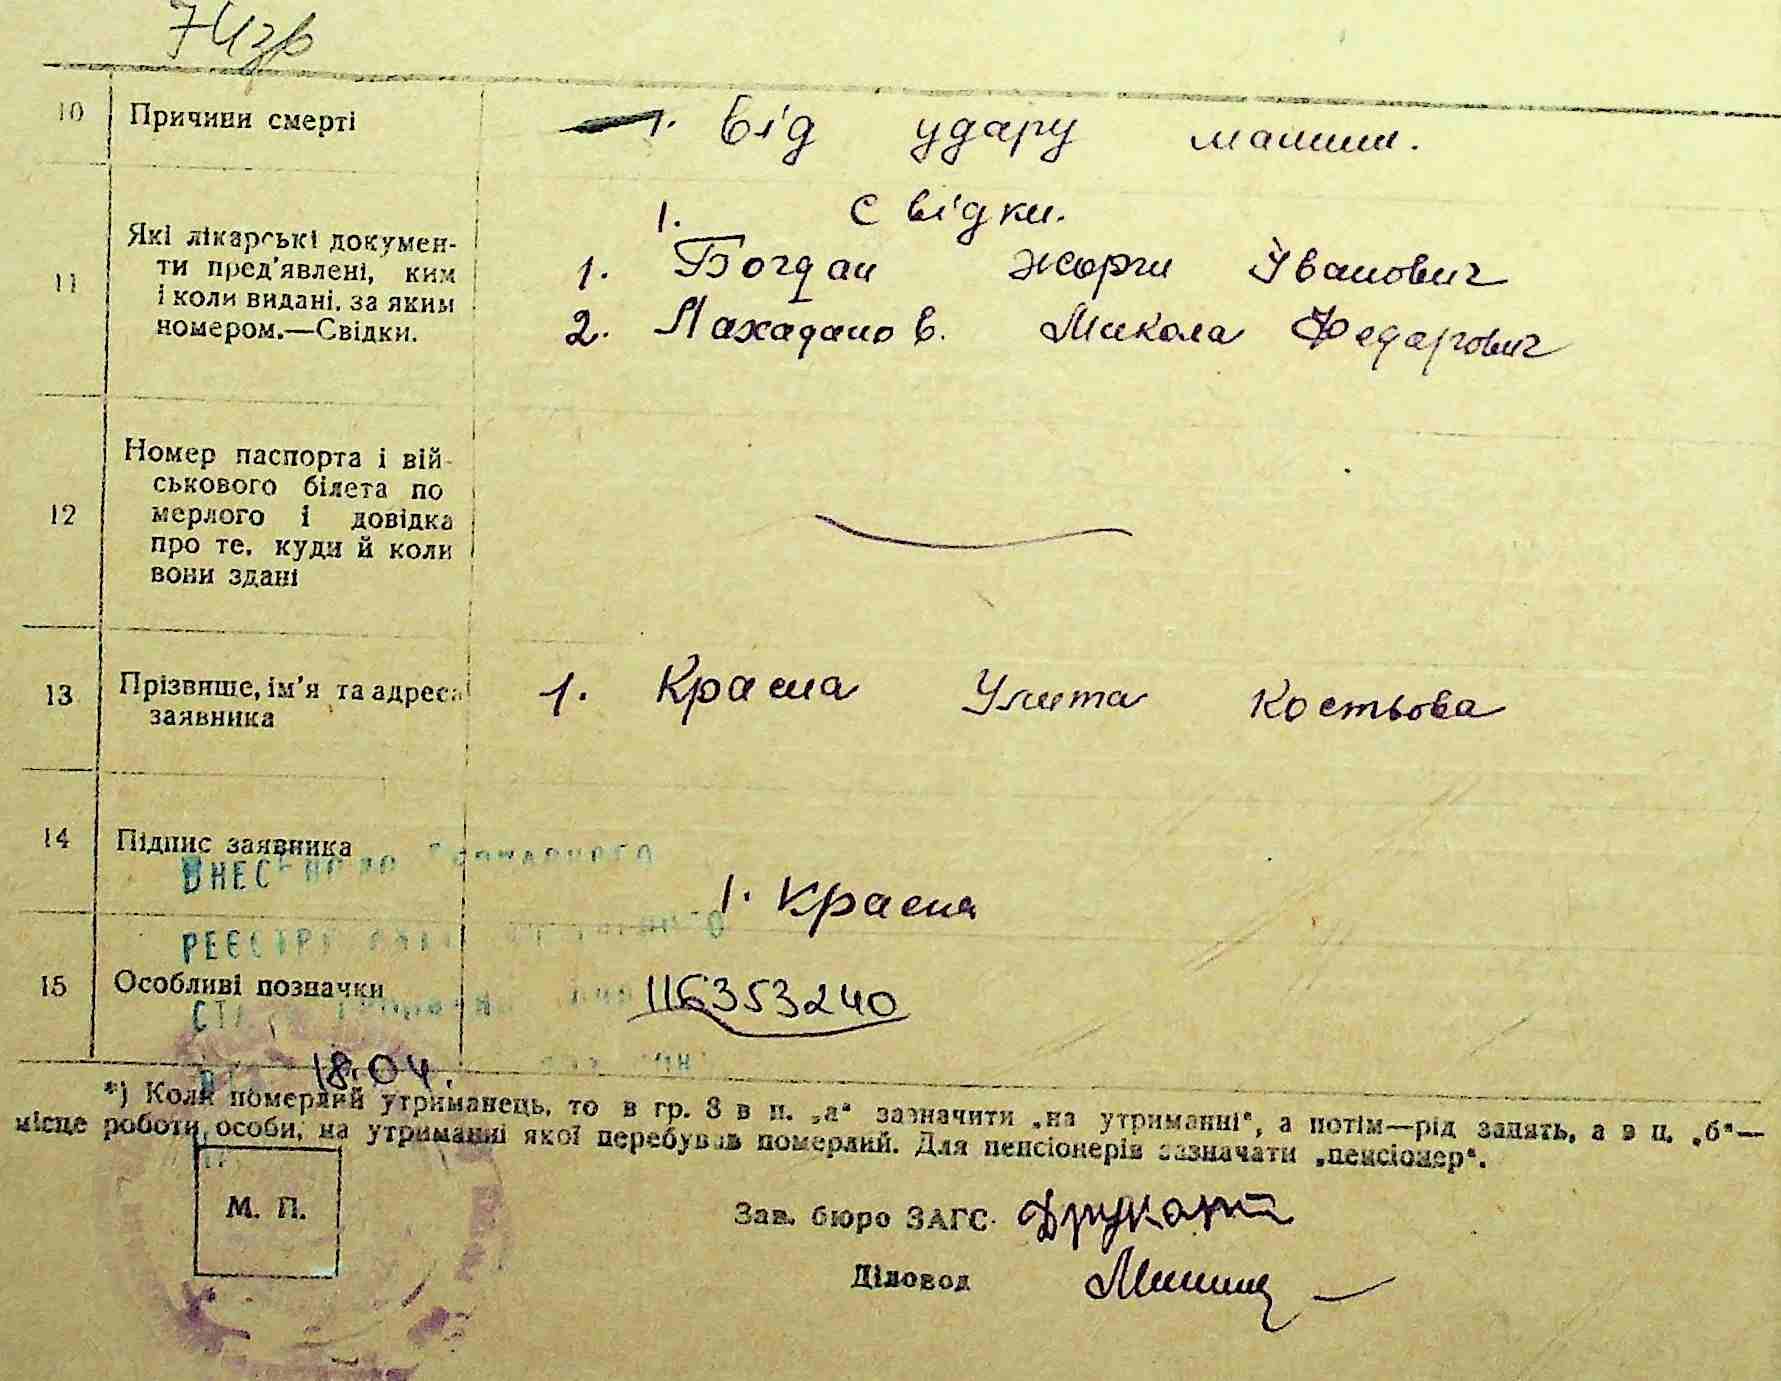 10 Причини смерті 1. Від удару машини.
1. Свідки.
11 Які лікарські докумен-
ти пред'явлені, ким
і коли видані, за яким
номером.—Свідки.
1. Богдан Жорги Іванович
2. Лахадано в. Микола Федарович
12 Номер паспорта і вій-
ськового білета по
мерлого і довідка
про те, куди й коли
вони здані
13 Прізвище, ім'я та адреса
заявника
1. Красна Улита Костьова
14 Підпис заявника
ВНЕСЕНО ДО Державного
1. Красна
РЕЄСТРУ
15 Особливі позначки
116353240
18.04.
*) Коли померлий утриманець, то в гр. 8 в п. „а“ зазначити „на утриманні“, а потім—рід занять, а в п. „б“—
місце роботи особи, на утриманні якої перебував померлий. Для пенсіонерів зазначати „пенсіонер“.
М. П.
Зав. бюро ЗАГС
Діловод